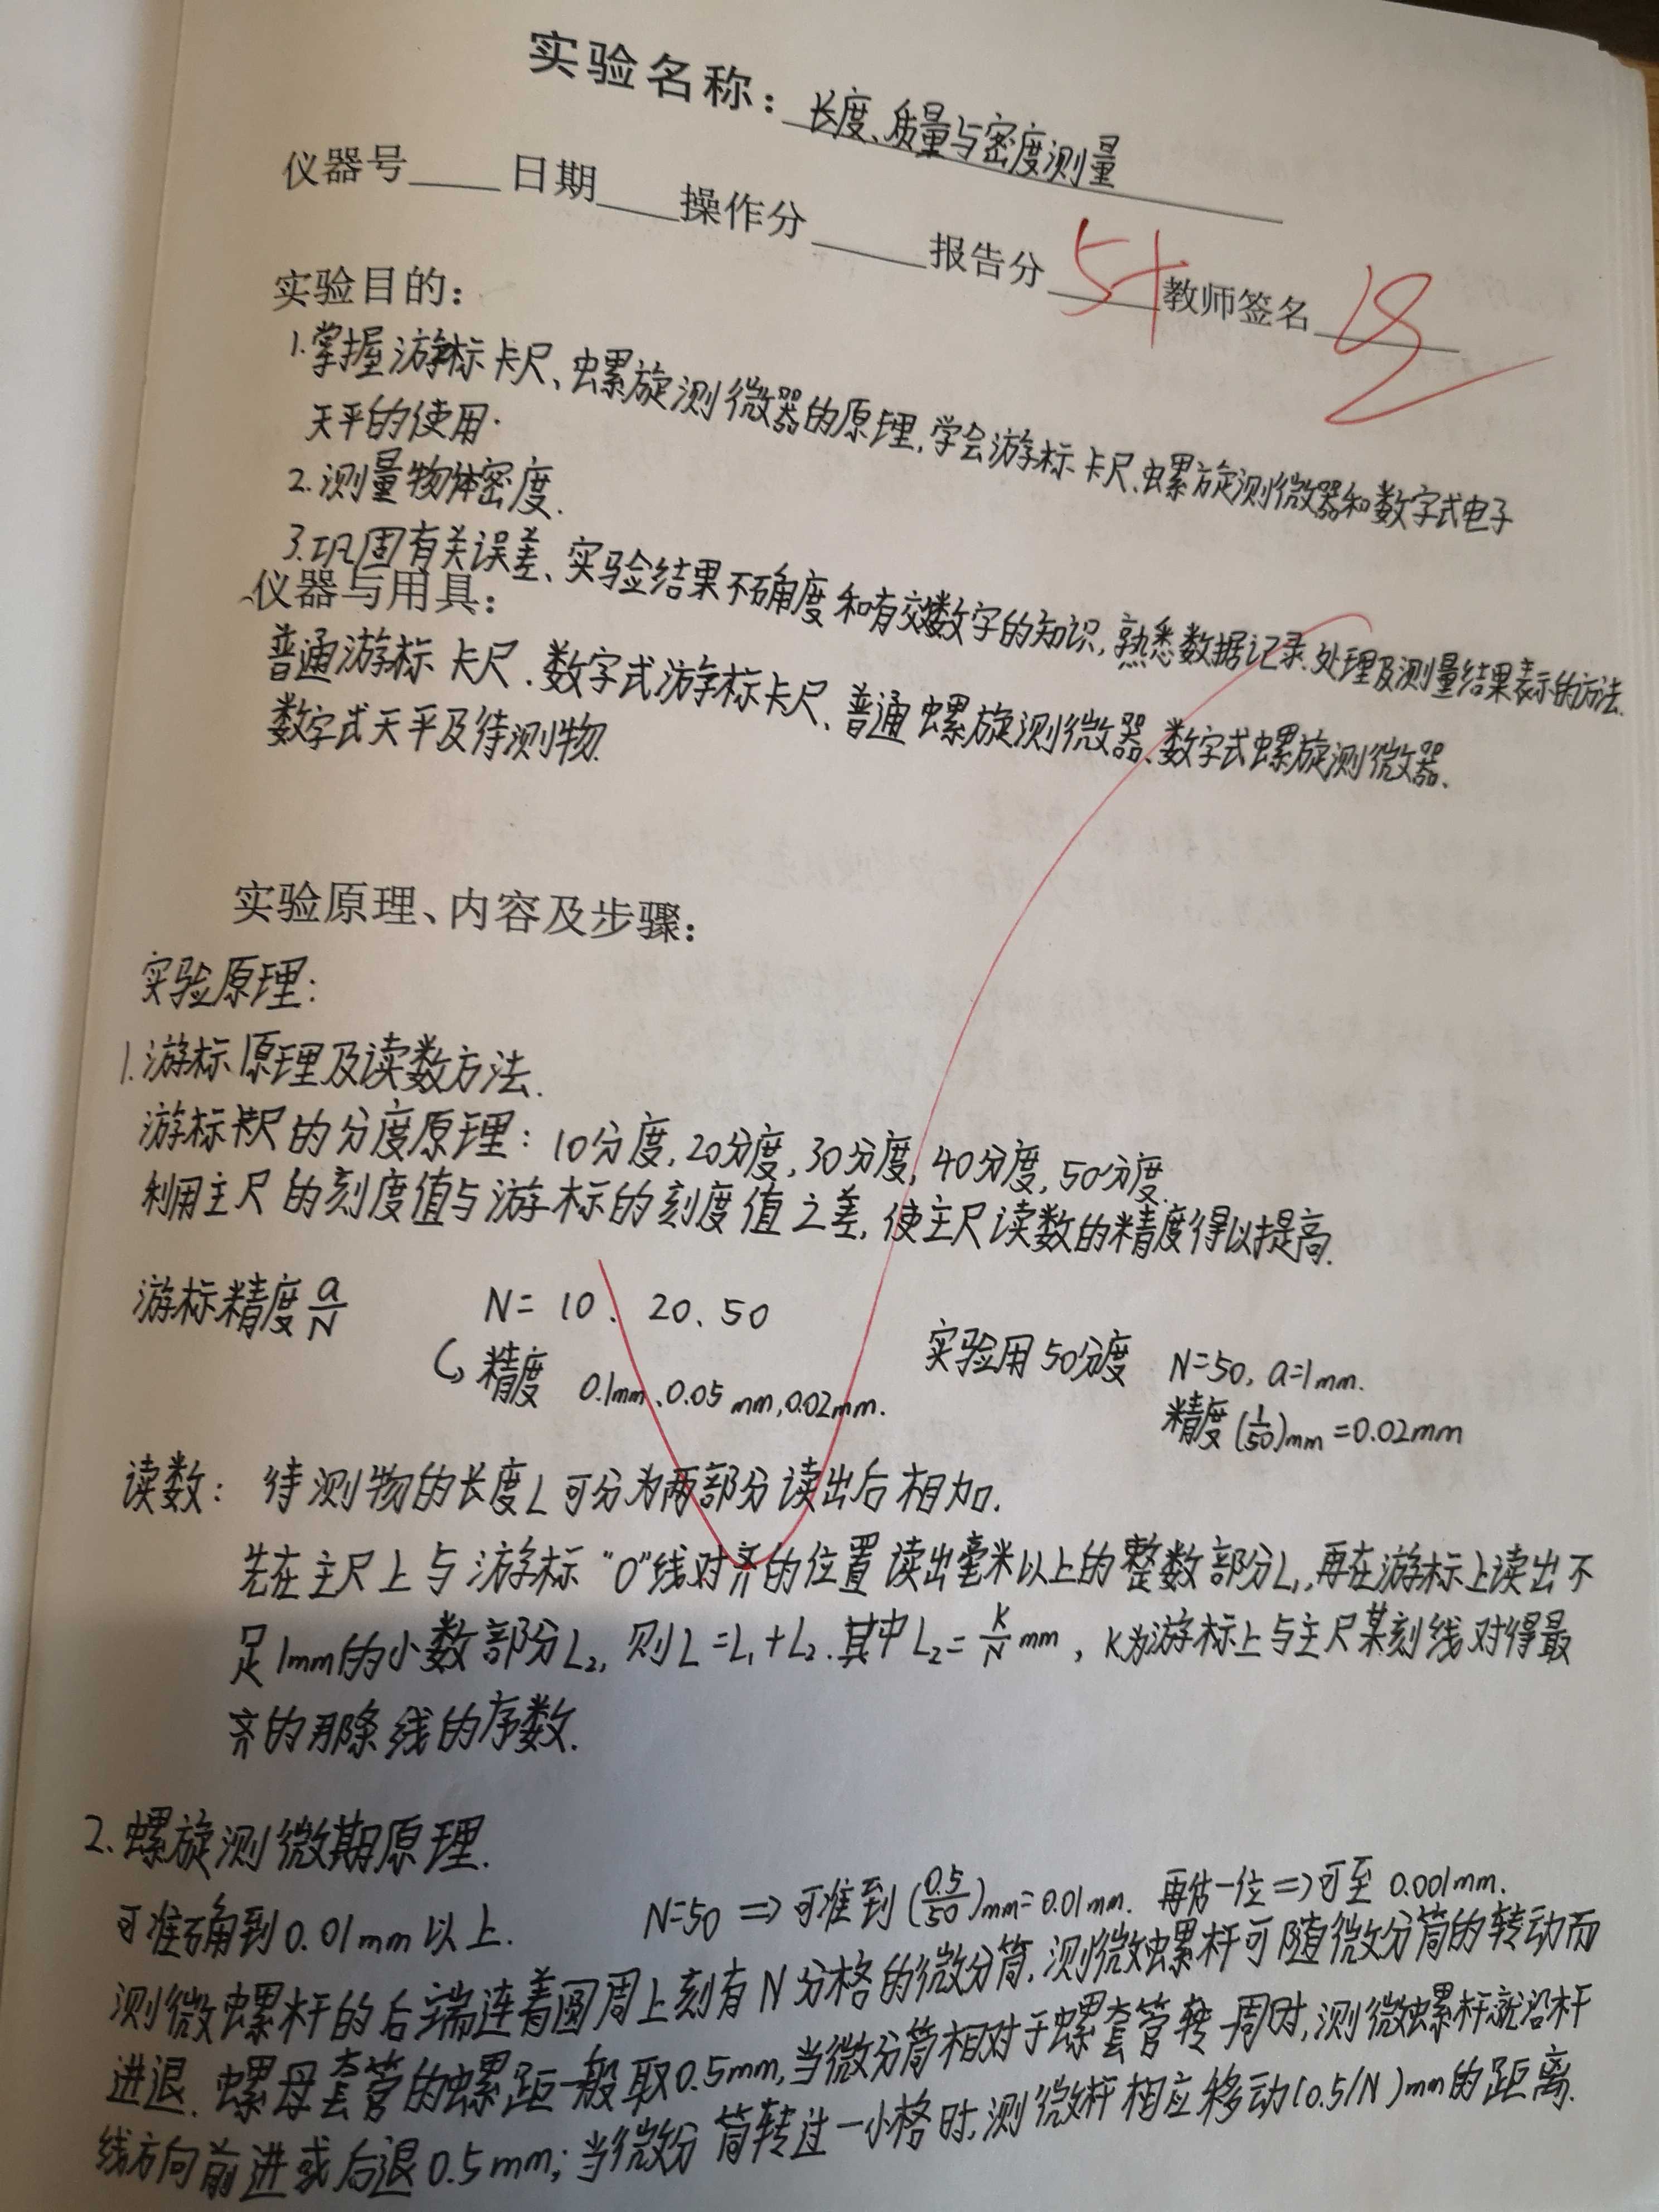 实验名称：长度、质量与密度测量
仪器号____日期____操作分____报告分 5+ 教师签名
实验目的：
1.掌握游标卡尺、螺旋测微器的原理,学会游标卡尺、螺旋测微器和数字式电子
天平的使用.
2.测量物体密度.
3.巩固有关误差、实验结果不确角度和有效数字的知识,熟悉数据记录、处理及测量结果表示的方法.
仪器与用具：
普通游标卡尺、数字式游标卡尺、普通螺旋测微器、数字式螺旋测微器、
数字式天平及待测物.
实验原理、内容及步骤：
实验原理:
1.游标原理及读数方法.
游标卡尺的分度原理: 10分度,20分度,30分度,40分度,50分度.
利用主尺的刻度值与游标的刻度值之差,使主尺读数的精度得以提高.
游标精度 a/N N= 10、20、50 实验用50分度 N=50, a=1mm.
↪精度 0.1mm、0.05mm,0.02mm. 精度(1/50)mm=0.02mm
读数: 待测物的长度L可分为两部分读出后相加.
先在主尺上与游标“0”线对齐的位置读出毫米以上的整数部分L₁,再在游标上读出不
足1mm的小数部分L₂, 则L=L₁+L₂.其中L₂=K/N mm, K为游标上与主尺某刻线对得最
齐的那条线的序数.
2.螺旋测微期原理.
可准确到0.01mm以上. N=50 ⇒ 可准到(0.5/50)mm=0.01mm. 再估一位⇒可至0.001mm.
测微螺杆的后端连着圆周上刻有N分格的微分筒,测微螺杆可随微分筒的转动而
进退.螺母套管的螺距一般取0.5mm,当微分筒相对于螺套管转一周时,测微螺杆就沿杆
线方向前进或后退0.5mm;当微分筒转过一小格时,测微杆相应移动(0.5/N)mm的距离.